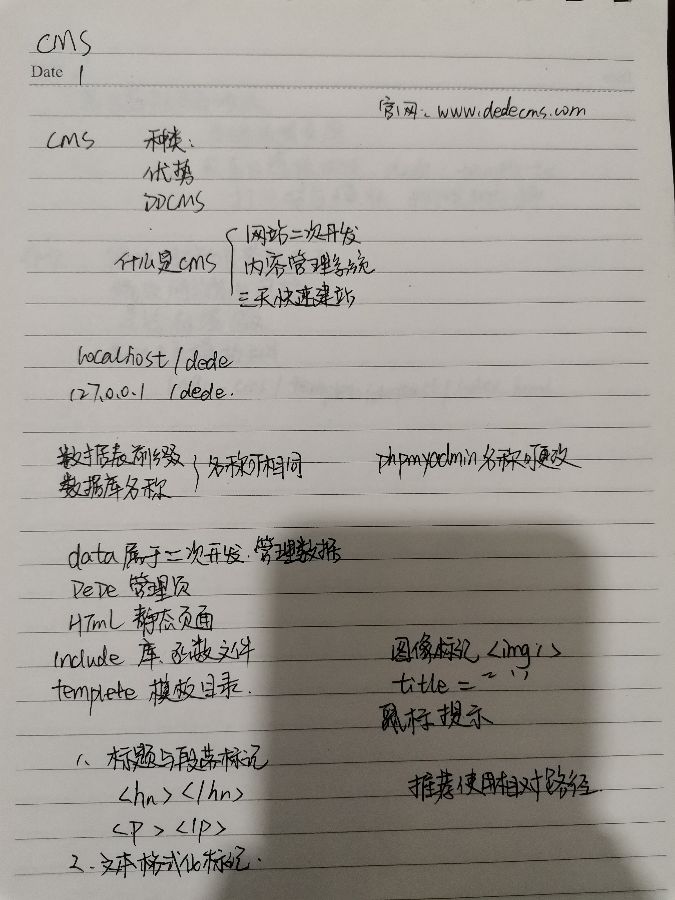 CMS
Date 1
官网: www.dedecms.com
CMS 种类:
优势
DDCMS
什么是CMS
网站二次开发
内容管理系统
三天快速建站
localhost/dede
127.0.0.1 /dede.
数据表前缀
数据库名称
名称可相同
phpmyadmin名称可更改
data 属于二次开发.管理数据
DeDe 管理员
HTmL 静态页面
include 库、函数文件
templete 模板目录.
图像标记 <img>
title = " "
鼠标提示
1、标题与段落标记
<hn> </hn>
<P> </P>
推荐使用相对路径.
2、文本格式化标记.